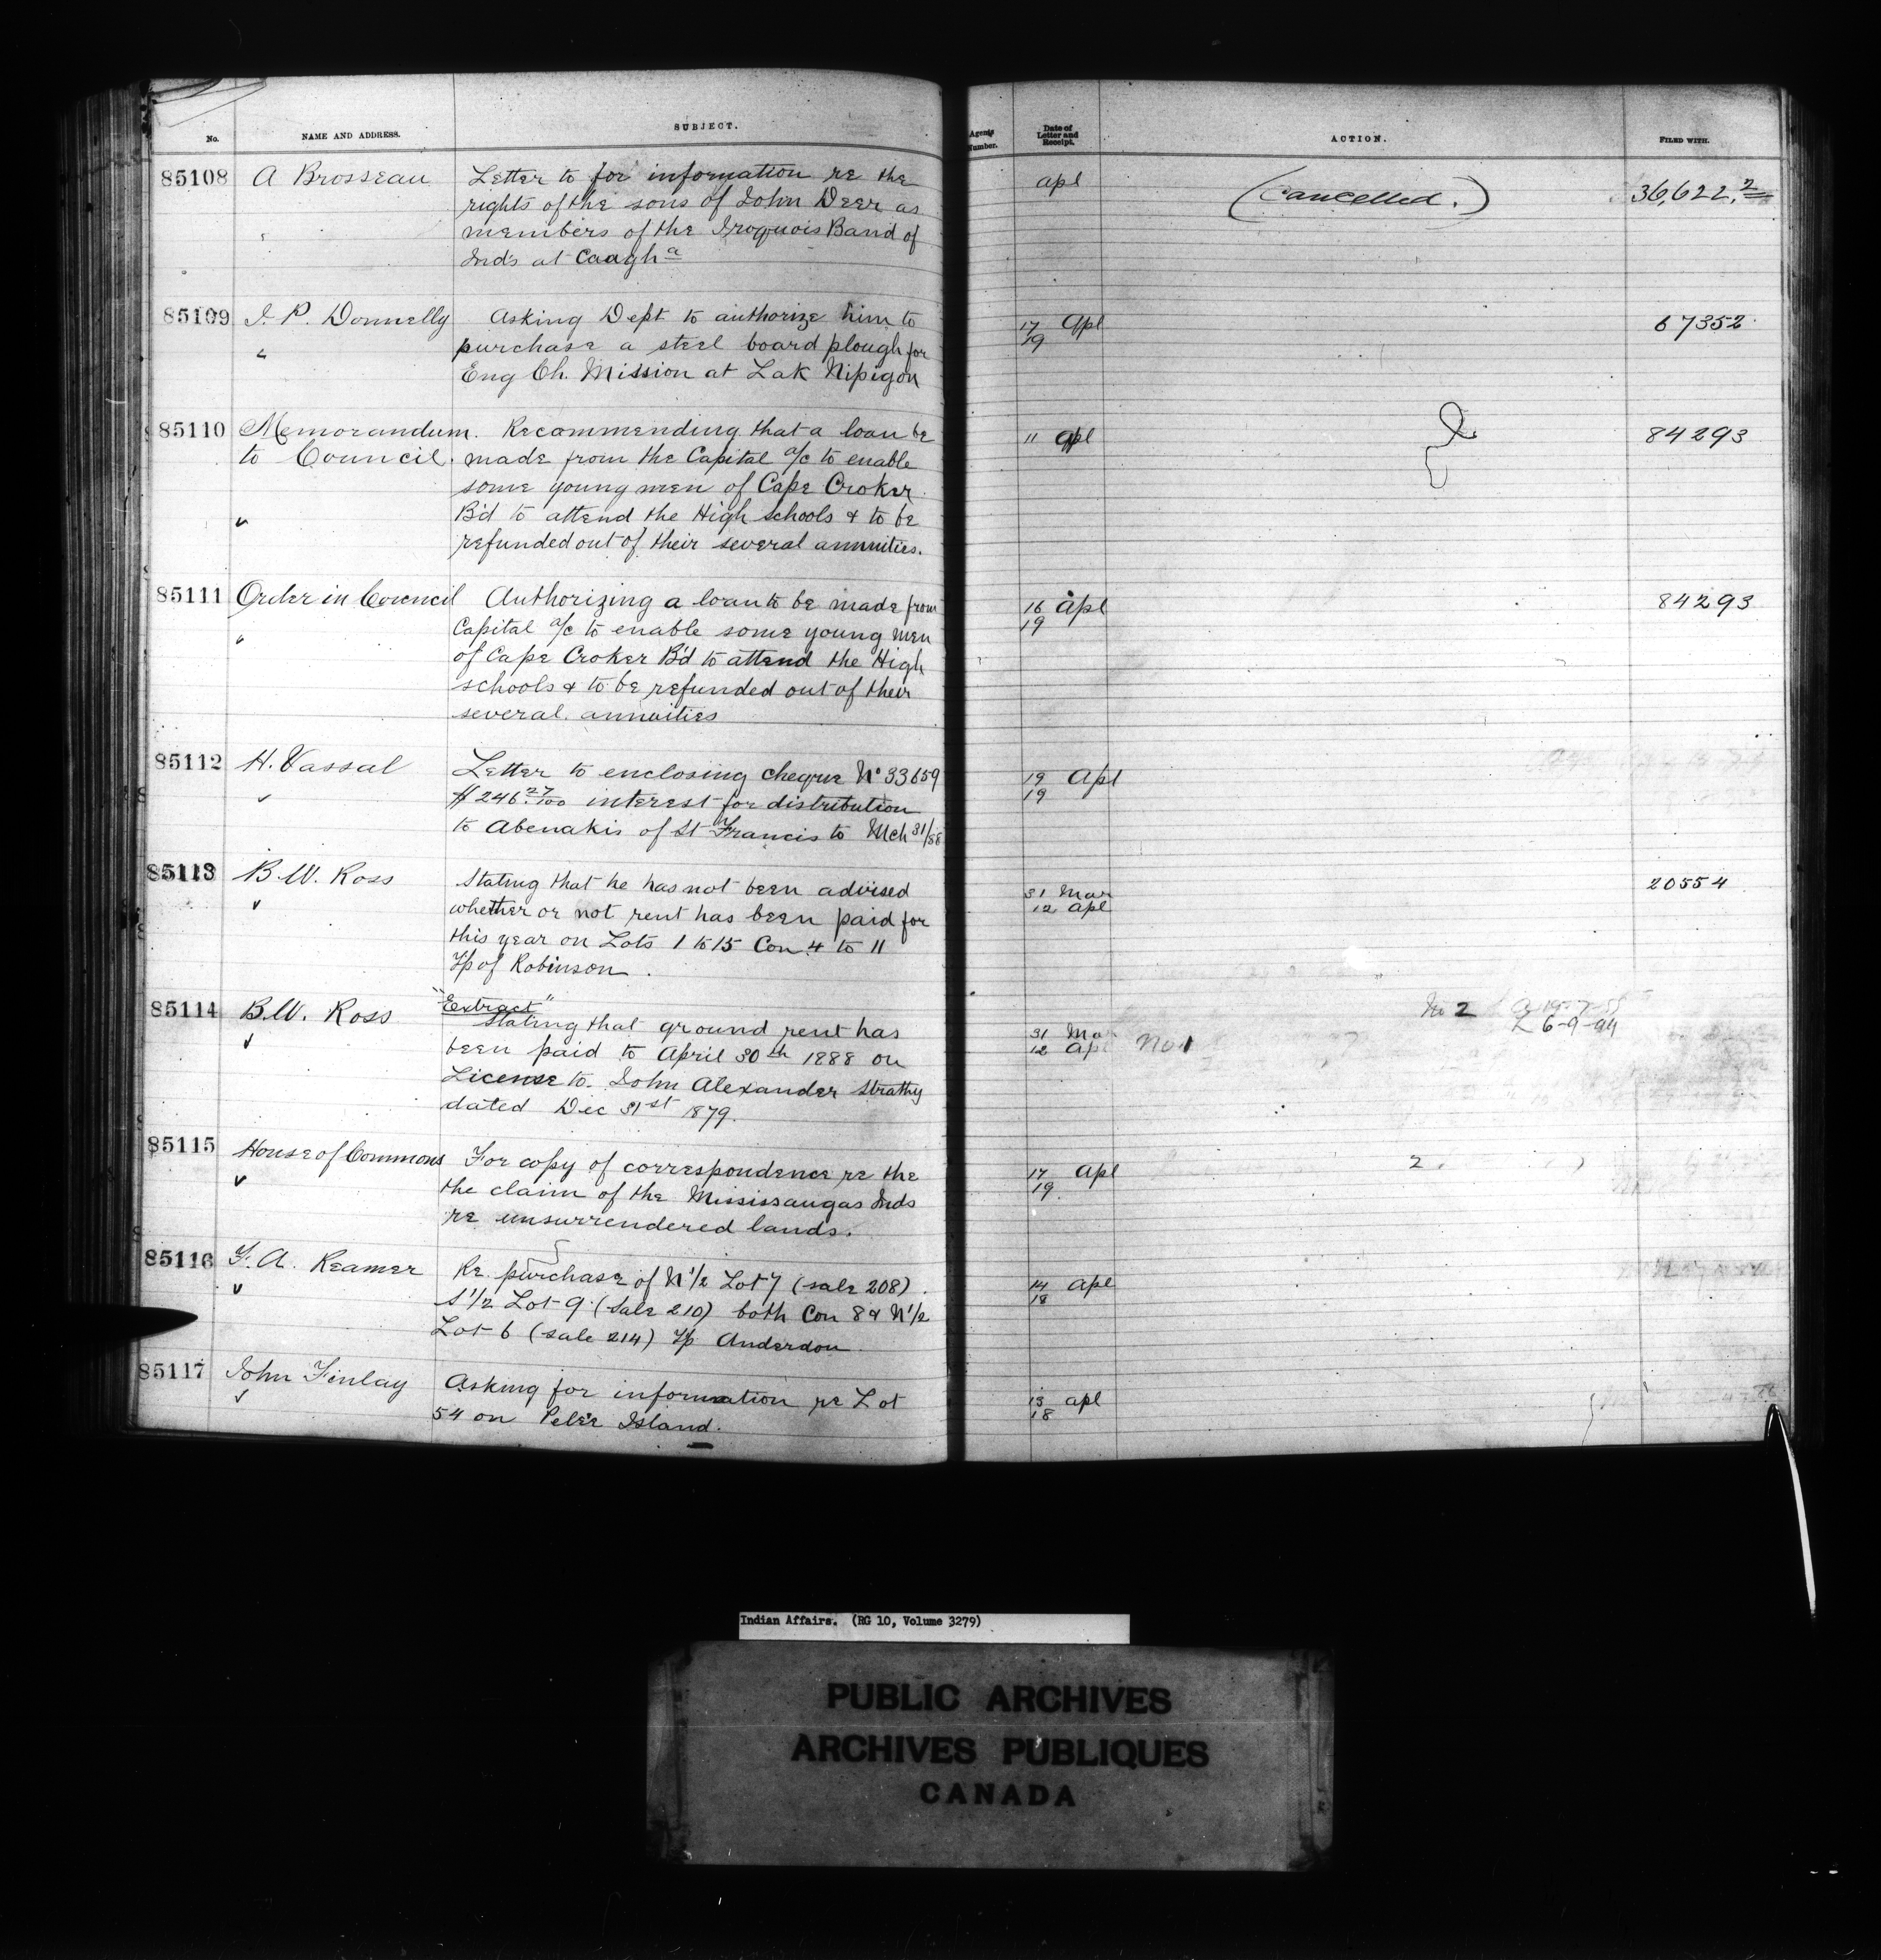 No. NAME AND ADDRESS. SUBJECT. Agents Number. Date of Letter and Receipt. ACTION. FILED WITH.
85108 A Brosseau Letter to for information re the apl (Cancelled.) 36,622.2
rights of the sons of John Deer as
members of the Iroquois Band of
Ind's at Caagh a
85109 J. P. Donnelly Asking Dept to authorize him to 17 Apl 67352
purchase a steel board plough for 19
Eng Ch. Mission at Lak Nipigon
85110 Memorandum. Recommending that a loan be 11 Apl 84293
to Council. made from the Capital a/c to enable
some young men of Cape Croker
B'd to attend the High schools & to be
refunded out of their several annuities.
85111 Order in Council Authorizing a loan to be made from 16 Apl 84293
Capital a/c to enable some young men 19
of Cape Croker B'd to attend the High
schools & to be refunded out of their
several annuities
85112 H. Vassal Letter to enclosing cheque No 33659 19 Apl
$246.27/100 interest for distribution 19
to Abenakis of St Francis to Mch 31/88
85113 B.W. Ross Stating that he has not been advised 31 Mar 20554
whether or not rent has been paid for 12 Apl
this year on Lots 1 to 15 Con 4 to 11
Tp of Robinson.
85114 B.W. Ross "Extract" No 2
Stating that ground rent has 31 Mar L 6-9-94
been paid to April 30th 1888 on 12 Apl No 1
License to John Alexander Strathy
dated Dec 31st 1879.
85115 House of Commons For copy of correspondence re the 17 Apl 2
the claim of the Mississaugas Inds 19
re unsurrendered lands.
85116 F. A. Reamer Re purchase of N 1/2 Lot 7 (sale 208) 14 Apl
S 1/2 Lot 9 (Sale 210) both Con 8 & N 1/2 18
Lot 6 (sale 214) Tp Anderdon
85117 John Finlay Asking for information re Lot 13 apl
54 on Pelee Island. 18
Indian Affairs. (RG 10, Volume 3279)
PUBLIC ARCHIVES
ARCHIVES PUBLIQUES
CANADA